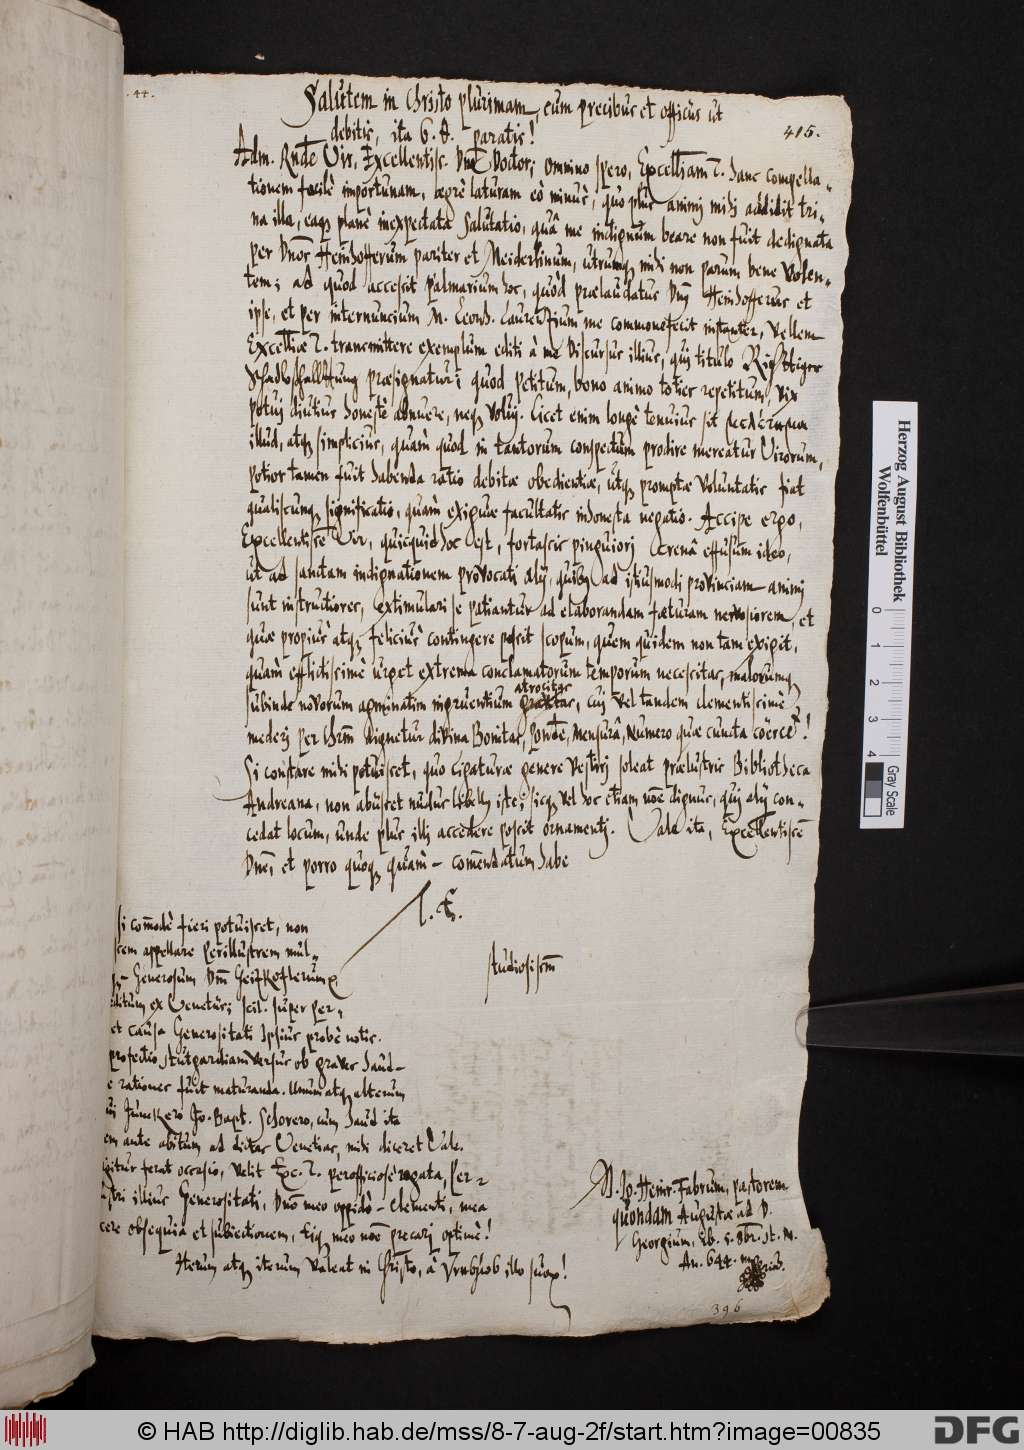 .44.
Salutem in Christo plurimam, cum precibus et officijs ut
415.
debitis, ita E. T. paratis!
Adm. Rnde Vir, Excellentiss. Dne Doctor; omnino spero, Excellentiam T. hanc compella-
tionem facilè importunam, aegrè laturam eò minùs, quo plus animi mihi addidit tri-
na illa, eaq; planè inexpectata Salutatio, quâ me indignum beare non fuit dedignata
per Dnos Heinhofferum pariter et Meiderlinum, utrumq; mihi non parum bene volen-
tem; ad quod accessit palmarium hoc, quòd praelaudatus Dnus Heinhofferus et
ipse, et per internuncium M. Leonh. me commonefecit instanter, vellem
Excelliae T. transmittere exemplum editi à me Discursus illius, qui titulo Richtiger
Schadloshallttung praesignatur; quod petitum, bono animo toties repetitum, vix
potui diutius honestè abnuere, neq; volui. Licet enim longè tenuius sit
illud, atq; simplicius, quàm quod in tantorum conspectum prodire mereatur Virorum,
potior tamen fuit habenda ratio debitae obedientiae, utq; promptae voluntatis fiat
qualiscunq; significatio, quàm exiguae facultatis inhonesta negatio. Accipe ergo,
Excellentissime Vir, quicquid hoc est, fortassis pinguiori crenâ effusum ideo,
ut ad sanctam indignationem provocati alij, quibus ad istiusmodi provinciam animi
sunt instructiores, extimulari se patiantur ad elaborandam faeturam nervosiorem, et
quae propiùs atq; feliciùs contingere possit scopum, quem quidem non tam exigit,
quàm efflictissimè urget extrema conclamatorum temporum necessitas, malorumq;
atrocitas
subinde novorum agminatim ingruentium, cui vel tandem clementissimè
mederi per Chrm dignetur divina Bonitas, Pondere, Mensurâ, Numero quae cuncta coërcet!
Si constare mihi potuisset, quo ligaturae genere vestiri soleat praelustris Bibliotheca
Andreana, non abüsset nudus libellus iste; sicq; vel hoc etiam nomine dignus, qui alij con-
cedat locum, unde plus illi accedere possit ornamenti. Vale ita, Excellentissime
Dne, et porro quoq; quàm - comendatum habe
T. E.
studiosissm
si comodè fieri potuisset, non
appellare Perillustrem mul-
Generosum Dnm Geitzkoflerum
reditum ex Venetijs; scil. super per-
et causa Generositati Ipsius probè notis.
profectio Stutgardiam versus ob graves haud-
rationes fuit maturanda. Unum atq; alterum
Junckero Jo. Bapt. Schorero, cum haud ita
ante abitum ad dictas Venetias, mihi diceret Vale.
igitur ferat occasio, velit Exc. T. perofficiosè rogata, Per-
illius Generositati, Dno meo oppidò - clementi, mea
obsequia et subiectionem, Eiq; meo noe precari optimè!
Iterum atq; iterum valeat in Christo, à
M. Jo. Heinr. Fabrum, pastorem
quondam Augustae ad D.
Georgium, Eb. 5. 8br. st. N.
An. 644.
396
Herzog August Bibliothek
Wolfenbüttel
0 1 2 3 4
Gray Scale
© HAB http://diglib.hab.de/mss/8-7-aug-2f/start.htm?image=00835
DFG